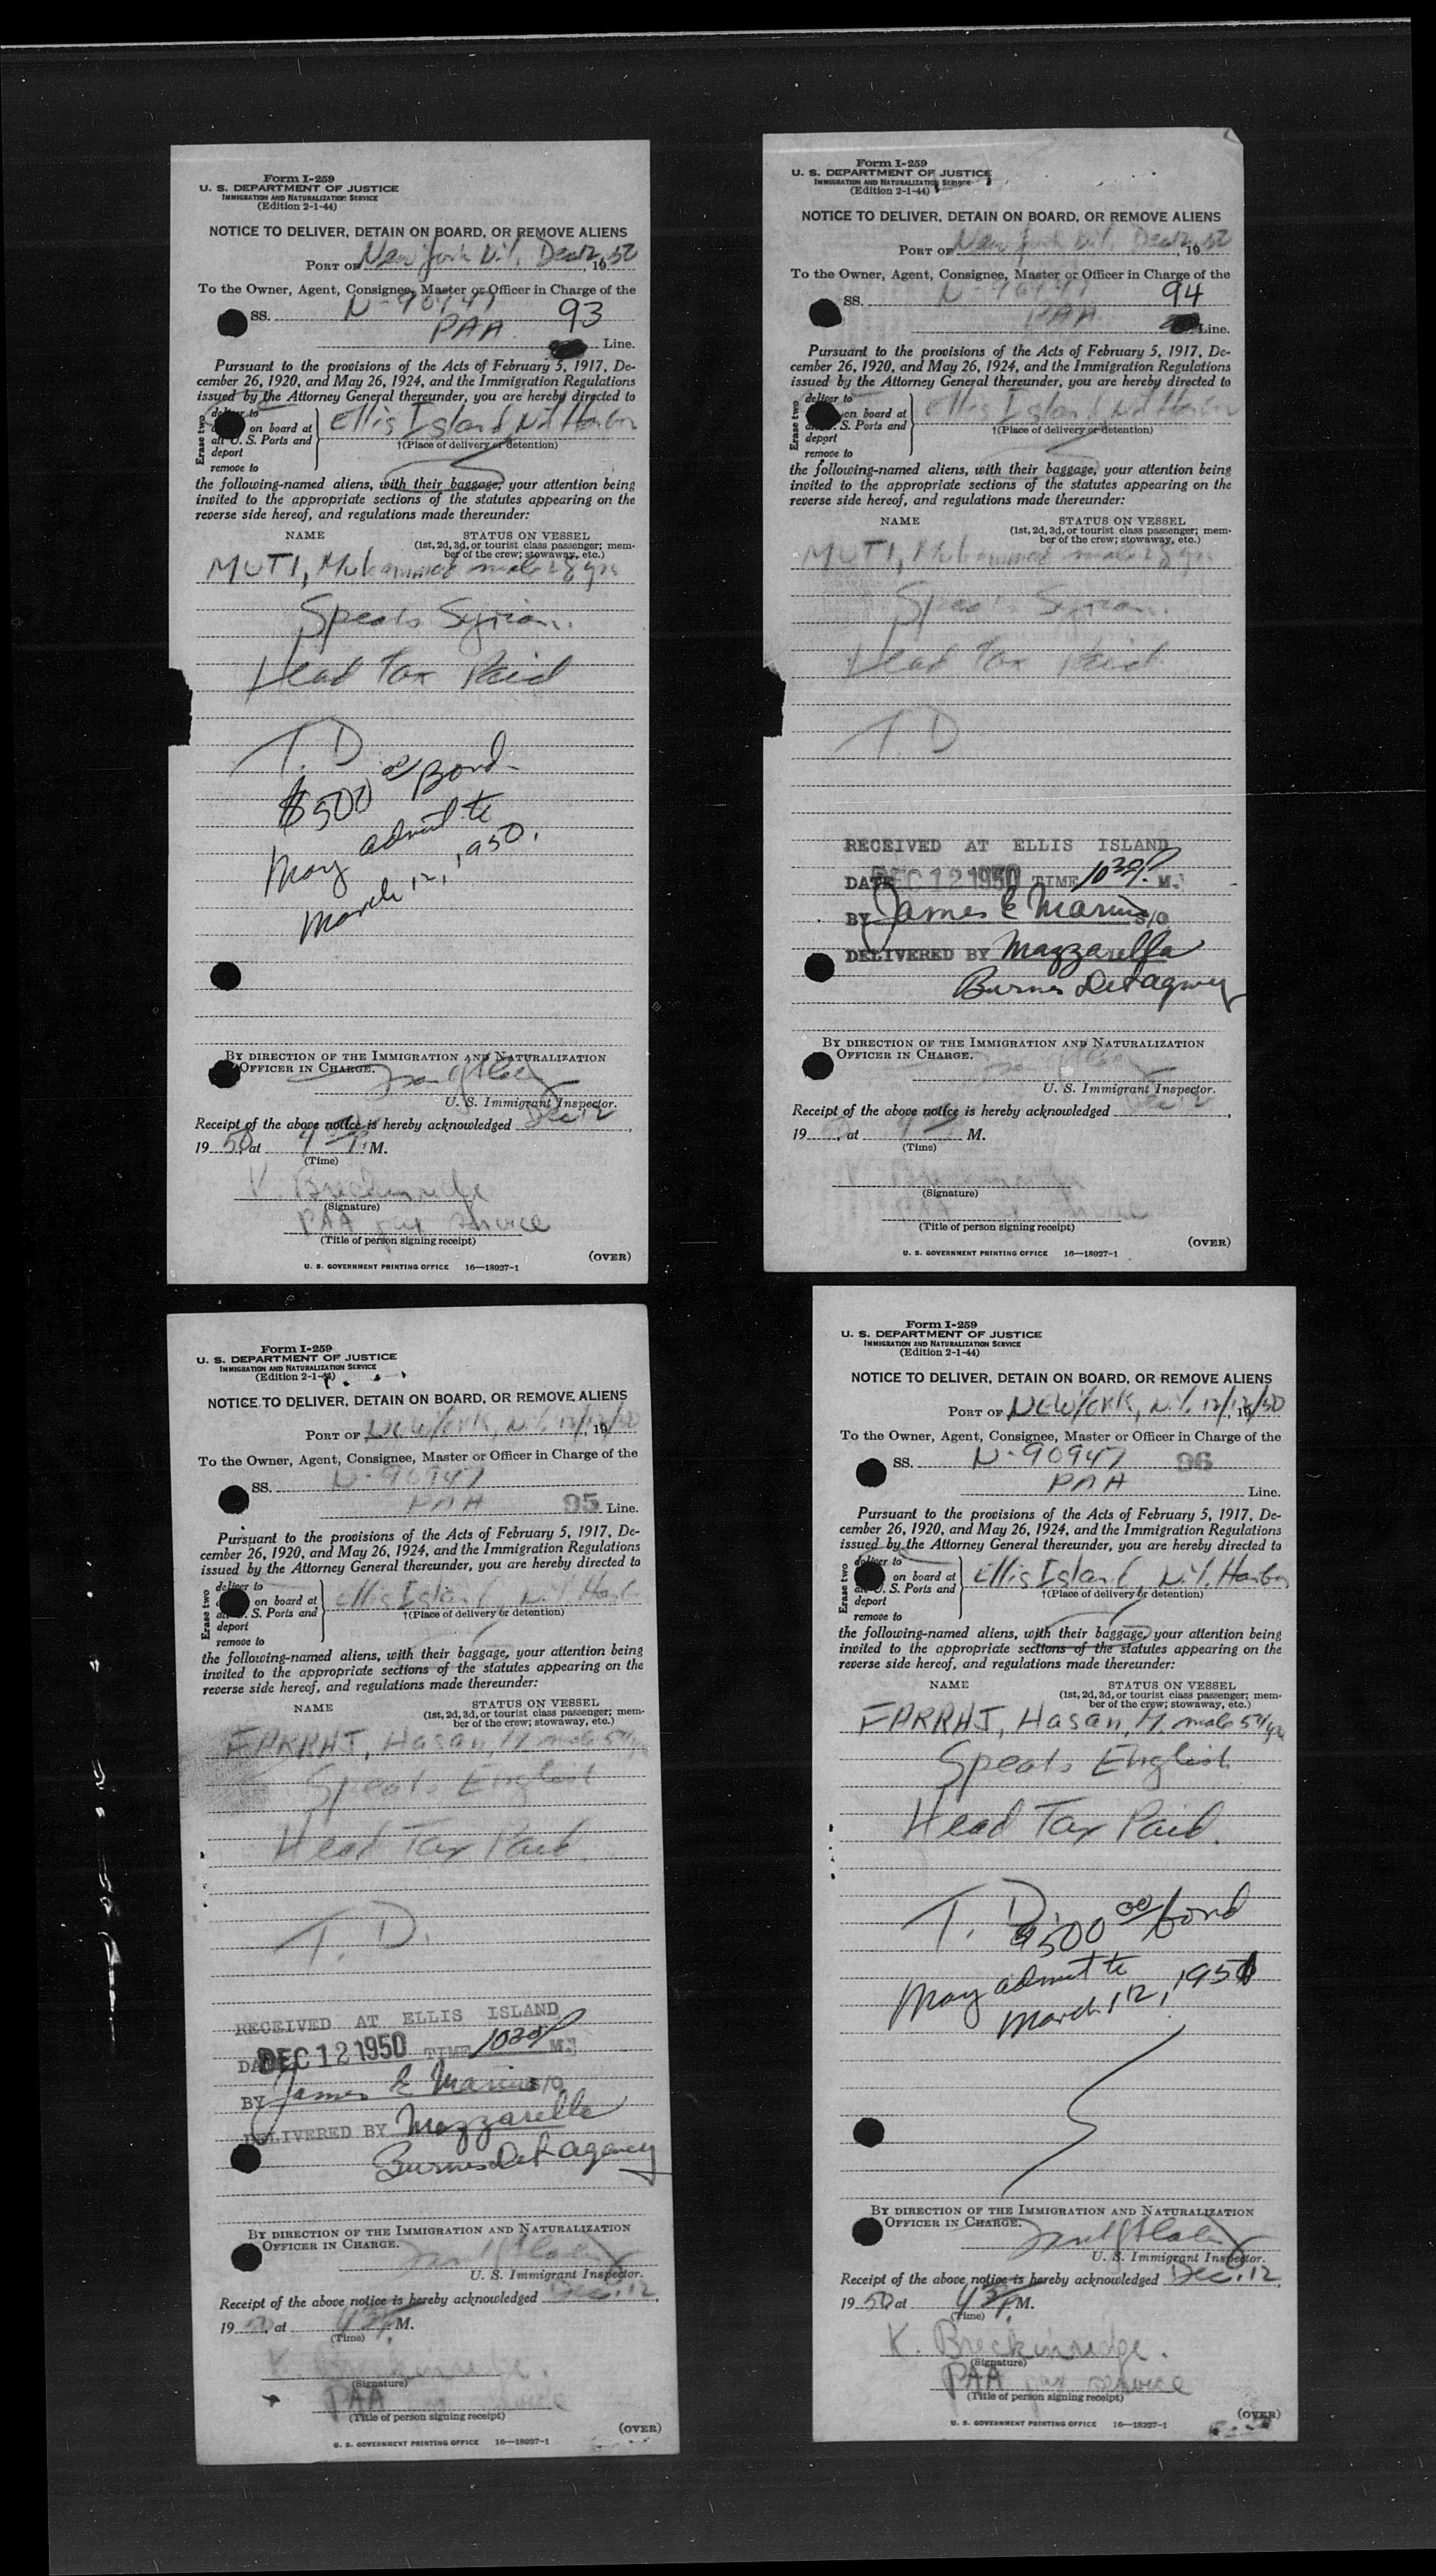 Form I-259
U. S. DEPARTMENT OF JUSTICE
IMMIGRATION AND NATURALIZATION SERVICE
(Edition 2-1-44)
NOTICE TO DELIVER, DETAIN ON BOARD, OR REMOVE ALIENS
PORT OF New York N.Y. Dec 12, 1950
To the Owner, Agent, Consignee, Master or Officer in Charge of the
SS. N-90947 93
PAA Line.
Pursuant to the provisions of the Acts of February 5, 1917, De-
cember 26, 1920, and May 26, 1924, and the Immigration Regulations
issued by the Attorney General thereunder, you are hereby directed to
Erase two
deliver to
on board at
all U. S. Ports and
deport
remove to
Ellis Island N.Y. Harbor
†(Place of delivery or detention)
the following-named aliens, with their baggage, your attention being
invited to the appropriate sections of the statutes appearing on the
reverse side hereof, and regulations made thereunder:
NAME STATUS ON VESSEL
(1st, 2d, 3d, or tourist class passenger; mem-
ber of the crew; stowaway, etc.)
MUTI, Muhammad male 28 yrs
Speaks Syrian.
Head Tax Paid
T. D
$500 00 Bond
May admit to
March 12, 1950.
BY DIRECTION OF THE IMMIGRATION AND NATURALIZATION
OFFICER IN CHARGE.
U. S. Immigrant Inspector.
Receipt of the above notice is hereby acknowledged Dec 12,
19 50, at 4 30 P. M.
(Time)
K. Breckinridge
(Signature)
PAA pax service
(Title of person signing receipt)
(OVER)
U. S. GOVERNMENT PRINTING OFFICE 16—18927-1
Form I-259
U. S. DEPARTMENT OF JUSTICE
IMMIGRATION AND NATURALIZATION SERVICE
(Edition 2-1-44)
NOTICE TO DELIVER, DETAIN ON BOARD, OR REMOVE ALIENS
PORT OF New York N.Y. Dec 12, 1950
To the Owner, Agent, Consignee, Master or Officer in Charge of the
SS. N-90947 94
PAA Line.
Pursuant to the provisions of the Acts of February 5, 1917, De-
cember 26, 1920, and May 26, 1924, and the Immigration Regulations
issued by the Attorney General thereunder, you are hereby directed to
Erase two
deliver to
on board at
all U. S. Ports and
deport
remove to
Ellis Island N.Y. Harbor
†(Place of delivery or detention)
the following-named aliens, with their baggage, your attention being
invited to the appropriate sections of the statutes appearing on the
reverse side hereof, and regulations made thereunder:
NAME STATUS ON VESSEL
(1st, 2d, 3d, or tourist class passenger; mem-
ber of the crew; stowaway, etc.)
MUTI, Muhammad male 28 yrs
Speaks Syrian.
Head Tax Paid
T. D
RECEIVED AT ELLIS ISLAND
DATE DEC 12 1950 TIME 10 30 P. M.
BY James E Marino S/O
DELIVERED BY Mazzarella
Burns Det agency
BY DIRECTION OF THE IMMIGRATION AND NATURALIZATION
OFFICER IN CHARGE.
U. S. Immigrant Inspector.
Receipt of the above notice is hereby acknowledged Dec 12,
19 50, at 4 30 M.
(Time)
(Signature)
(Title of person signing receipt)
(OVER)
U. S. GOVERNMENT PRINTING OFFICE 16—18927-1
Form I-259
U. S. DEPARTMENT OF JUSTICE
IMMIGRATION AND NATURALIZATION SERVICE
(Edition 2-1-44)
NOTICE TO DELIVER, DETAIN ON BOARD, OR REMOVE ALIENS
PORT OF New York, N.Y. 12/12/, 1950
To the Owner, Agent, Consignee, Master or Officer in Charge of the
SS. N-90947
PAA 95 Line.
Pursuant to the provisions of the Acts of February 5, 1917, De-
cember 26, 1920, and May 26, 1924, and the Immigration Regulations
issued by the Attorney General thereunder, you are hereby directed to
Erase two
deliver to
on board at
all U. S. Ports and
deport
remove to
Ellis Island, N.Y. Harbor
†(Place of delivery or detention)
the following-named aliens, with their baggage, your attention being
invited to the appropriate sections of the statutes appearing on the
reverse side hereof, and regulations made thereunder:
NAME STATUS ON VESSEL
(1st, 2d, 3d, or tourist class passenger; mem-
ber of the crew; stowaway, etc.)
FARRAJ, Hasan, M. male 54 yrs
Speaks English
Head Tax Paid.
T. D.
RECEIVED AT ELLIS ISLAND
DATE DEC 12 1950 TIME 10 30 P M.
BY James E Marino S/O
DELIVERED BY Mazzarella
Burns Det agency
BY DIRECTION OF THE IMMIGRATION AND NATURALIZATION
OFFICER IN CHARGE.
U. S. Immigrant Inspector.
Receipt of the above notice is hereby acknowledged Dec. 12,
19 50, at 4 30 P. M.
(Time)
K. Breckinridge.
(Signature)
PAA pax service
(Title of person signing receipt)
(OVER)
U. S. GOVERNMENT PRINTING OFFICE 16—18927-1
Form I-259
U. S. DEPARTMENT OF JUSTICE
IMMIGRATION AND NATURALIZATION SERVICE
(Edition 2-1-44)
NOTICE TO DELIVER, DETAIN ON BOARD, OR REMOVE ALIENS
PORT OF New York, N.Y. 12/12/, 1950
To the Owner, Agent, Consignee, Master or Officer in Charge of the
SS. N-90947 96
PAA Line.
Pursuant to the provisions of the Acts of February 5, 1917, De-
cember 26, 1920, and May 26, 1924, and the Immigration Regulations
issued by the Attorney General thereunder, you are hereby directed to
Erase two
deliver to
on board at
all U. S. Ports and
deport
remove to
Ellis Island, N.Y. Harbor
†(Place of delivery or detention)
the following-named aliens, with their baggage, your attention being
invited to the appropriate sections of the statutes appearing on the
reverse side hereof, and regulations made thereunder:
NAME STATUS ON VESSEL
(1st, 2d, 3d, or tourist class passenger; mem-
ber of the crew; stowaway, etc.)
FARRAJ, Hasan, M. male 54 yrs
Speaks English
Head Tax Paid.
T. D. $500 00 bond
May admit to
March 12, 1951
BY DIRECTION OF THE IMMIGRATION AND NATURALIZATION
OFFICER IN CHARGE.
U. S. Immigrant Inspector.
Receipt of the above notice is hereby acknowledged Dec. 12,
19 50, at 4 30 P. M.
(Time)
K. Breckinridge.
(Signature)
PAA pax service
(Title of person signing receipt)
(OVER)
U. S. GOVERNMENT PRINTING OFFICE 16—18927-1